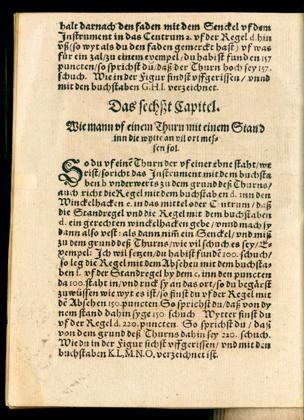 halt darnach den faden mit dem Senckel vf dem
Instrument in das Centrum a. vf der Regel d. hin
vß (so wyt als du den faden gemerckt hast) vf was
für ein zal/zu einem exempel/du habist funden 157
puncten/so sprichst du/daß der Thurn hoch sey 157.
schuch. Wie in der Figur sichst vffgerissen/vnnd
mit den buchstaben G.H.I. verzeichnet.
Das sechßt Capitel.
Wie mann vf einem Thurn mit einem Stand
inn die wytte an vil ort mes-
sen sol.
So du vf einē Thurn der vf einer ebne staht/we
rist/so richt das Instrument mit dem buchsta
ben b vnderwerts zu dem grund deß Thurns/
auch richt die Regel mit dem buchstaben d. inn den
Winckelhacken e. in das mittel oder Centrum/daß
die Standregel vnd die Regel mit dem buchstaben
d. ein gerechten winckelhacken gebe/vnnd mach sy
dann also vest: als dann nim ein Senckel/vnd miß
zu dem grund deß Thurns/wie vil schuch es sey/Ex-
empel: Ich wil setzen/du habist fundē 100. schuch/
so leg die Regel mit den Absehen mit dem buchsta
ben f. vf der Standregel by dem c. inn den puncten
da 100. staht in/vnd ruck sy an das ort/so du begärst
zuwüssen wie wyt es ist/so findst du vf der Regel mit
dē Absehen 150. puncten So sprichst du/daß von dy
nem stand dahin syge 150. schuch Wytter findst du
vf der Regel d. 220. puncten. So sprichst du/daß
von dem grund deß Thurns dahin sey 220. schuch.
Wie du in der Figur sichst vffgerissen/vnd mit den
buchstaben K.L.M.N.O. verzeichnet ist.